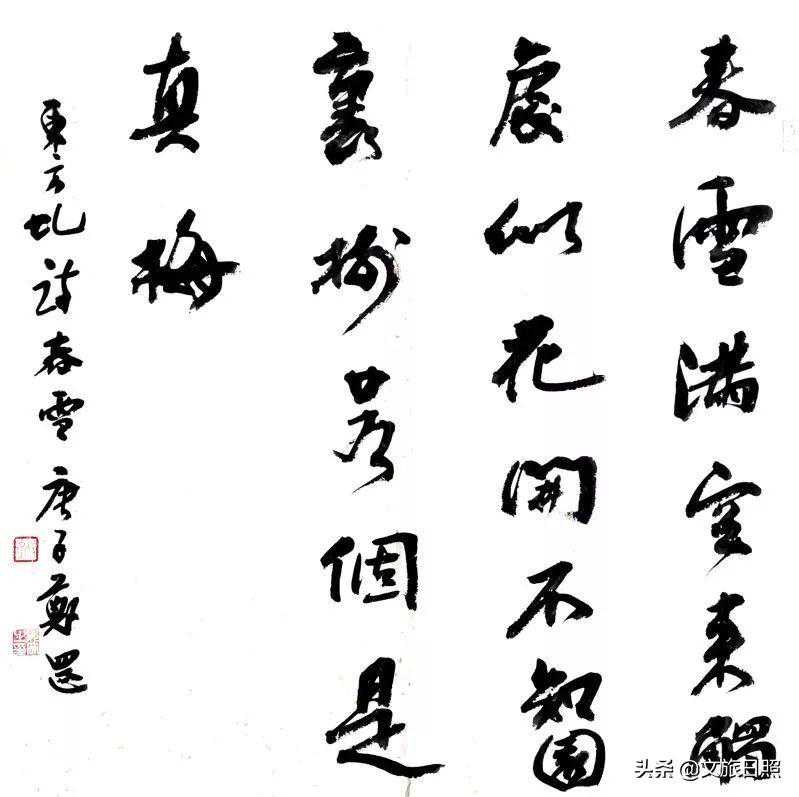 春雪滿空來觸
處似花開不知園
裏樹若個是
真梅
東方虬詩春雪庚子鄭
头条 @文旅日照